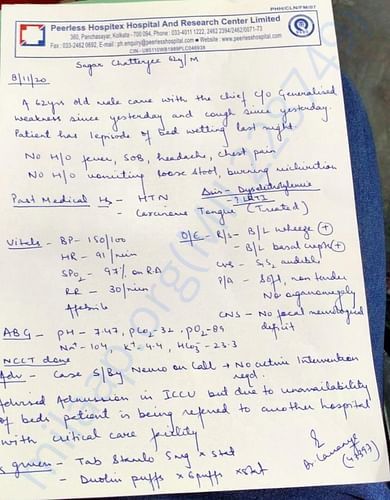 PHHI/CLN/FM/07
Peerless Hospitex Hospital And Research Center Limited
360, Panchasayar, Kolkata - 700 094, Phone : 033-4011 1222, 2462 2394/2462/0071-73
Fax : 033-2462 0692, E-mail : ph.enquiry@peerlesshospital.com Website : www.peerlesshospital.com
Sagar Chatterjee 62y/M
8/11/20
A 62yrs old male came with the chief c/o Generalised
weakness since yesterday and cough since yesterday.
Patient has 1episode of bed wetting last night.
No H/o fever, SOB, headache, chest pain
No H/o vomiting loose stool, burning micturition
Past Medical Hx - HTN
- Carcinoma Tongue (Treated)
Dyselectrolytemia
? LRTI
Vitals - BP - 150/100
HR - 91/min
SPO2 - 97% on RA
RR - 30/min
Afebrile
O/E - R/S - B/L wheeze (+)
- B/L basal creps (+)
CVS - S1S2 audible
P/A - Soft, non tender
No organomegaly
CNS - No focal neurological
deficit
ABG - pH - 7.47, pCO2 - 32, pO2 - 89
Na+ - 104, K+ - 4.4, HCO3- - 23.3
NCCT done
Adv - Case S/By Neuro on Call → No active Intervention
reqd.
Advised Admission in ICCU but due to unavailability
of beds patient is being referred to another hospital
with critical care facility
given - Tab Stamlo 5mg x stat
- Duolin puffs x 6puffs x stat
Dr.
milaap.org